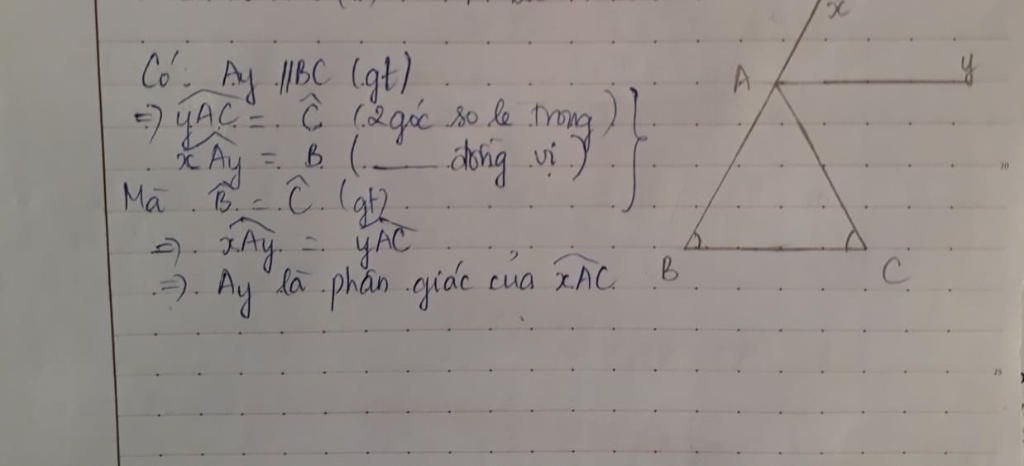 Có: Ay // BC (gt)
=> yAC = Ĉ (2 góc so le trong)
xAy = B (___ đồng vị)
Mà B̂ = Ĉ (gt)
=> xAy = yAC
=> Ay là phân giác của xAC
x
A
y
B
C
20
25